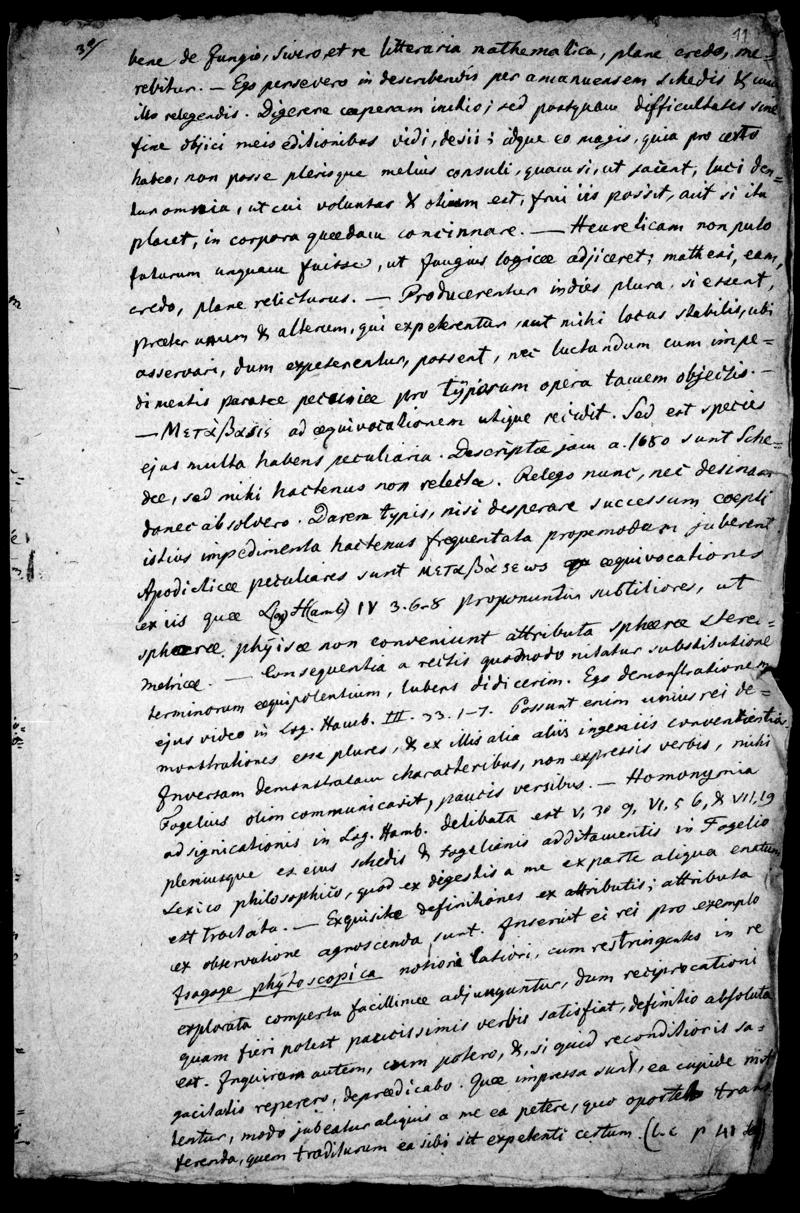 3e/
11
bene de Jungio, Sivero, et re litteraria mathematica, plane credo, me=
rebitur. — Ego persevero in describendis per amanuensem schedis & cum
illo relegendis. Digerere cœperam initio; sed postquam difficultates sine
fine objici meis editionibus vidi, desii; idque eo magis, quia pro certo
habeo, non posse plerisque melius consuli, quam si, ut jacent, luci den=
tur omnia, ut cui voluntas & otium est, frui iis possit, aut si ita
placet, in corpora quædam concinnare. — Heureticam non puto
futurum unquam fuisse, ut Jungius logicæ adjiceret; mathesi, eam,
credo, plane relicturus. — Producerentur indies plura, si essent,
præter unum & alterum, qui expeterentur, aut mihi locus stabilis, ubi
asservari, dum expeterentur, possent, nec luctandum cum impe=
dimentis paratæ pecuniæ pro typorum opera tamen objectis. —
— Μετάβασις ad æquivocationem utique recidit. Sed est species
ejus multa habens peculiaria. Descriptæ jam a. 1680 sunt Sche=
dæ, sed mihi hactenus non relectæ. Relego nunc, nec desinam
donec absolvero. Darem typis, nisi desperare successum coepti
istius impedimenta hactenus frequentata propemodum juberent
Apodicticæ peculiares sunt μεταβάσεως æquivocationes
ex iis quæ L(og) H(amb) IV 3. 6-8 proponuntur subtiliores, ut
sphæræ physicæ non conveniunt attributa sphæræ stereo=
metricæ. — Consequentia a rectis quomodo nitatur substitutione
terminorum æquipolentium, lubens didicerim. Ego demonstrationem
ejus video in Log. Hamb. III. 33. 1-7. Possunt enim unius rei de=
monstrationes esse plures, & ex illis alia aliis ingeniis convenientior
Inversam demonstratam characteribus, non expressis verbis, mihi
Fogelius olim communicavit, paucis versibus. — Homonymia
adsignicationis in Log. Hamb. delibata est V, 30 9, VI, 5 6, & VII, 19
pleniusque ex ejus schedis & Fogelianis additamentis in Fogelio
Lexico philosophico, quod ex digestis a me ex parte aliqua enatum
est tractata. — Exquisitæ definitiones ex attributis; attributa
ex observatione agnoscenda sunt. Inserviit ei rei pro exemplo
Isagoge phytoscopica notiori latiori, cum restringentes in re
explorata comperta facillime adjunguntur, dum reciprocationi
quam fieri potest paucissimis verbis satisfiat, definitio absoluta
est. Inquiram autem, cum potero, &, si quid reconditioris sa=
gacitatis reperero, deprædicabo. Quæ impressa sunt, ea cupide mit
tentur, modo jubeatur aliquis a me ea petere, quo oportet trans
ferenda, quem traditurum ea sibi sit expetenti certum. (l. c p 41